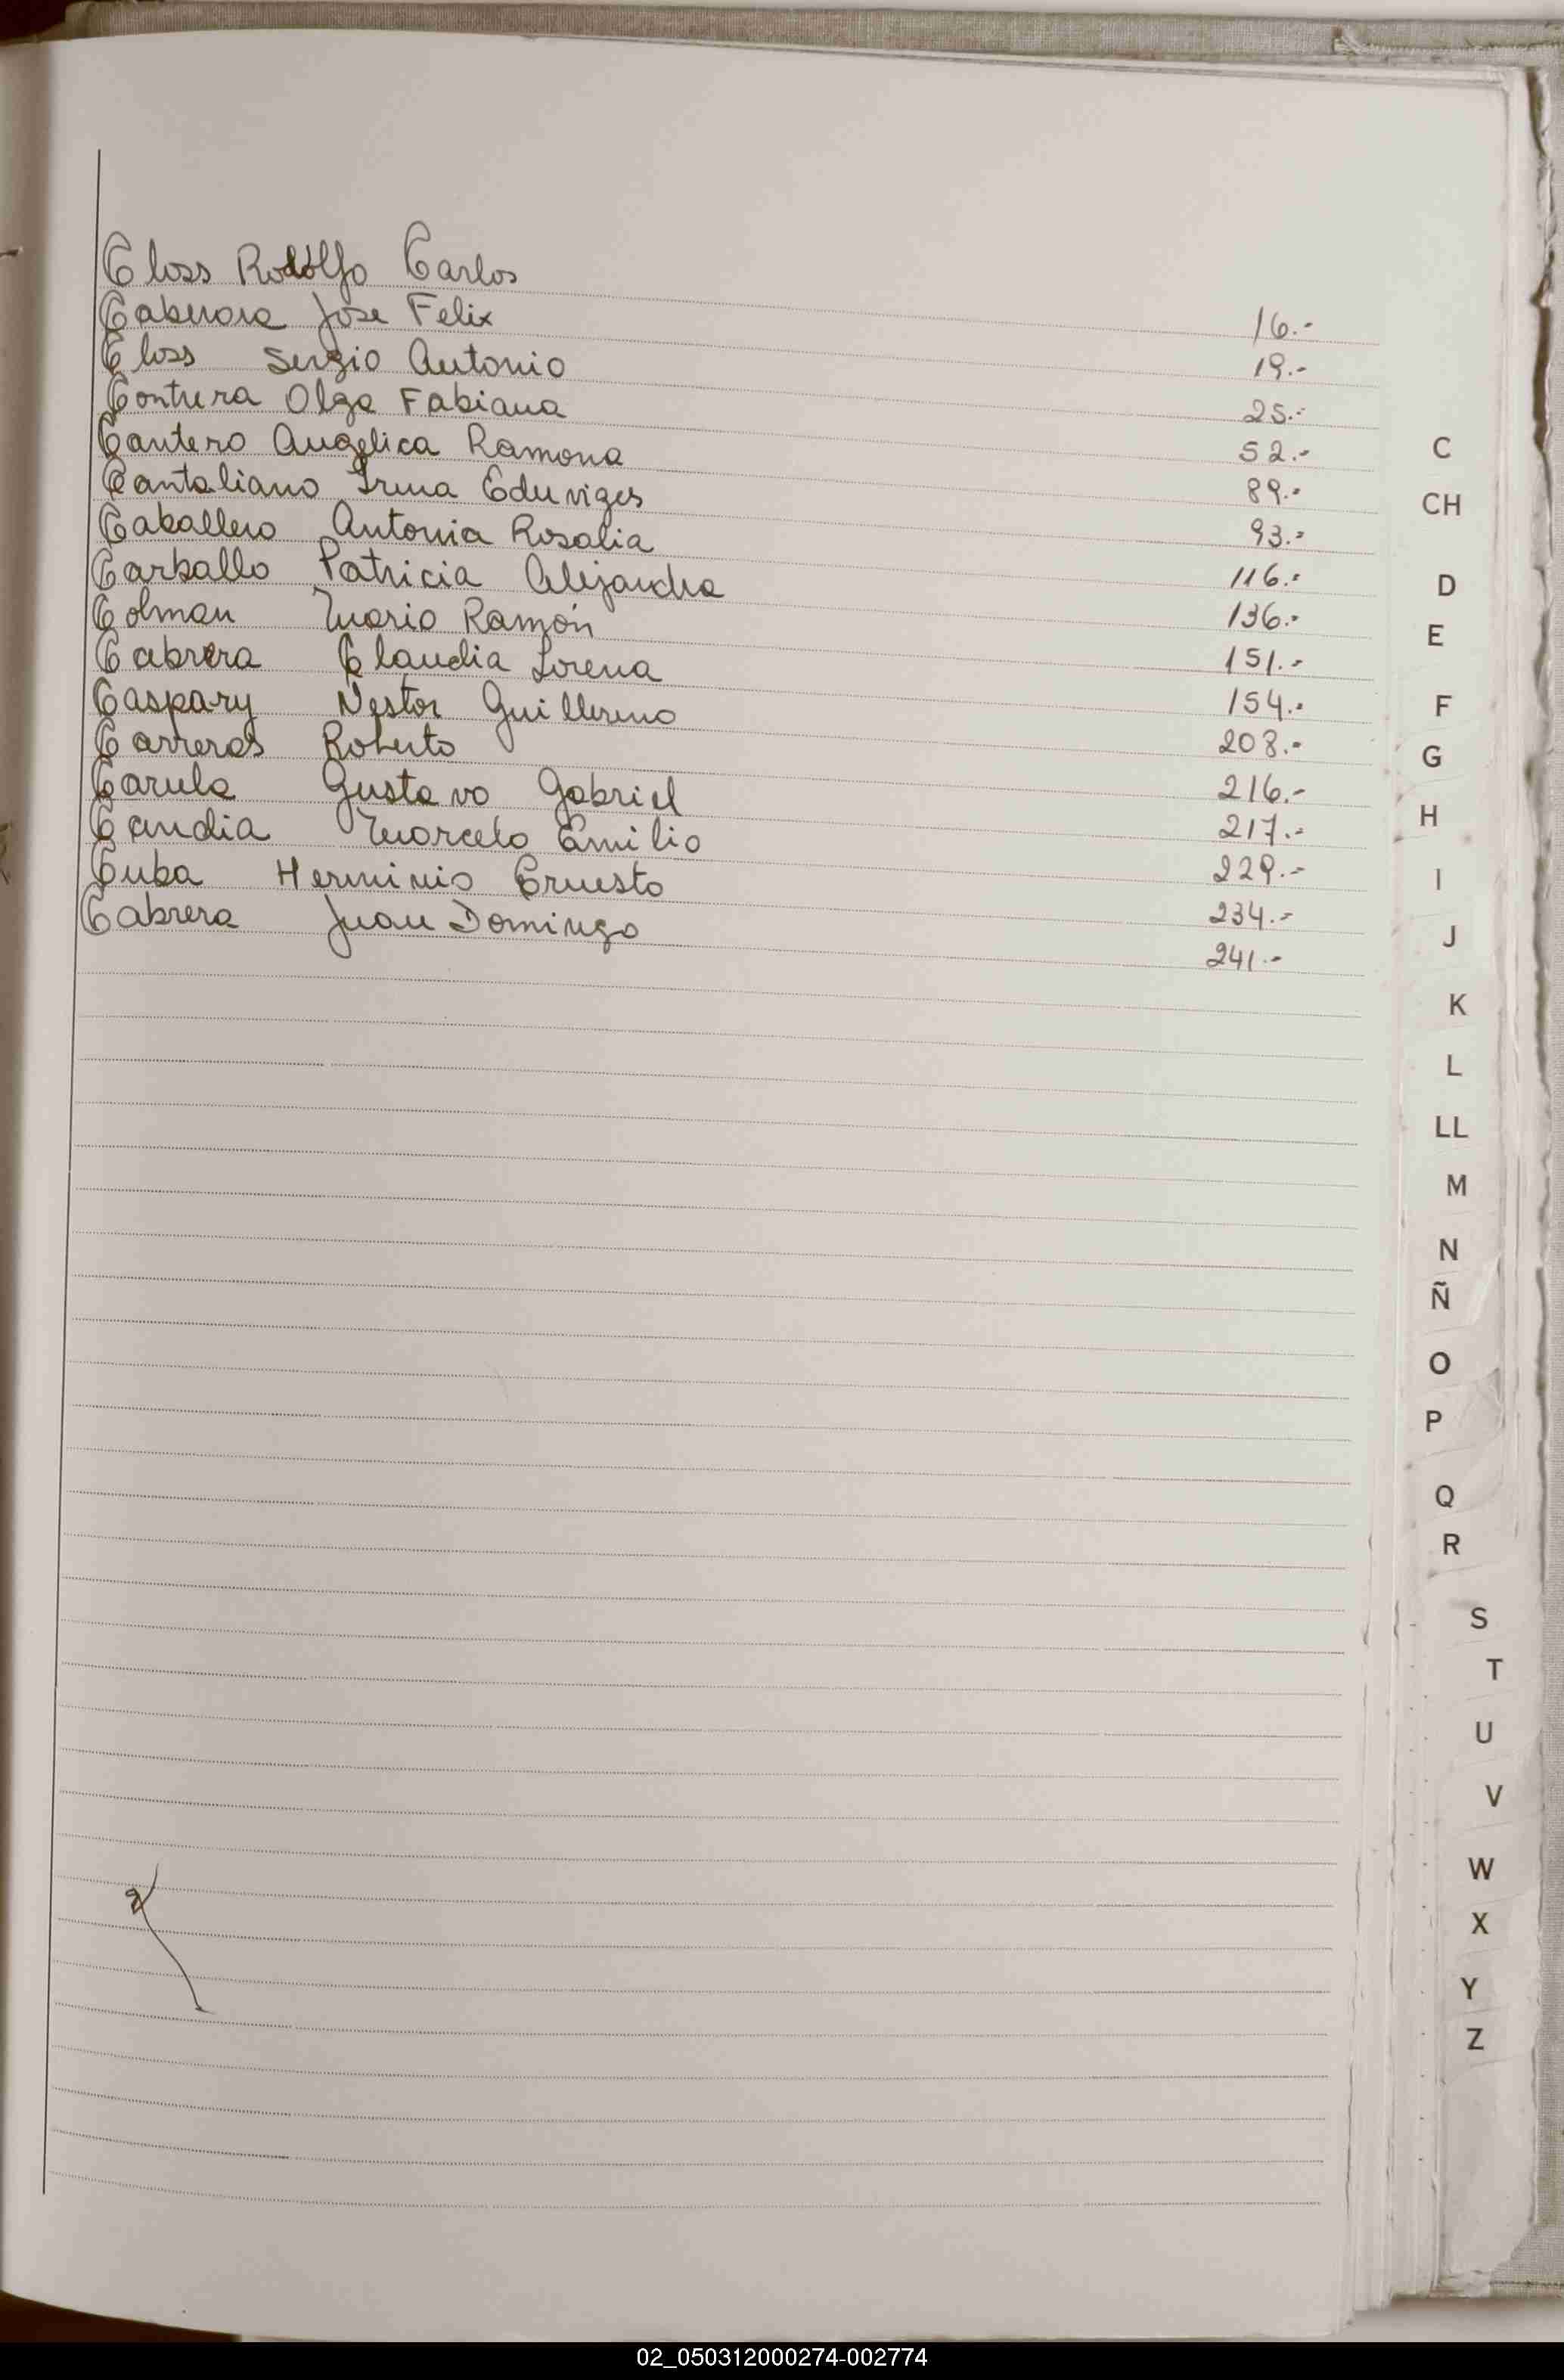 Closs Rodolfo Carlos 16.-
Cabrera Jose Felix 19.-
Closs Sergio Antonio 25.-
Contrera Olga Fabiana 52.-
Cantero Angelica Ramona 89.-
Cantaliano Irma Eduviges 93.-
Caballero Antonia Rosalia 116.-
Carballo Patricia Alejandra 136.-
Colman Mario Ramón 151.-
Cabrera Claudia Lorena 154.-
Caspary Nestor Guillermo 208.-
Carreras Roberto 216.-
Carula Gustavo Gabriel 217.-
Candia Marcelo Emilio 229.-
Cuba Herminio Ernesto 234.-
Cabrera Juan Domingo 241.-
C
CH
D
E
F
G
H
I
J
K
L
LL
M
N
Ñ
O
P
Q
R
S
T
U
V
W
X
Y
Z
02_050312000274-002774